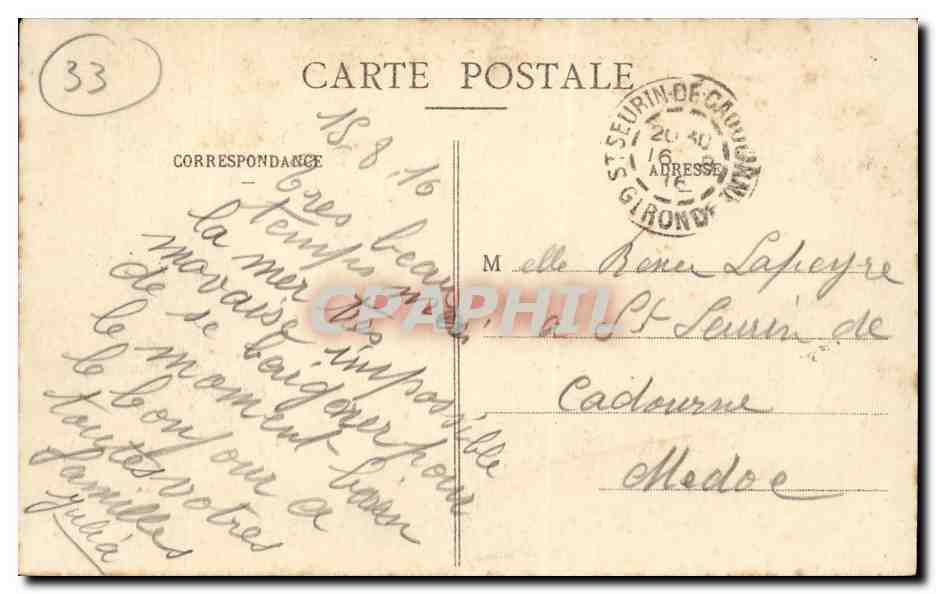 33
CARTE POSTALE
CORRESPONDANCE
ADRESSE
ST SEURIN-DE-CADOURNE
GIRONDE
20 30
16 - 8
16
15-8.16
tres beau
temps mes
la mer tres
movaise impossible
de se baigner pour
le moment bien
le bonjour a
toutes votres
familles
Julia
Melle Lapeyre
a St Seurin de
Cadourne
Medoc
CPAPHIL